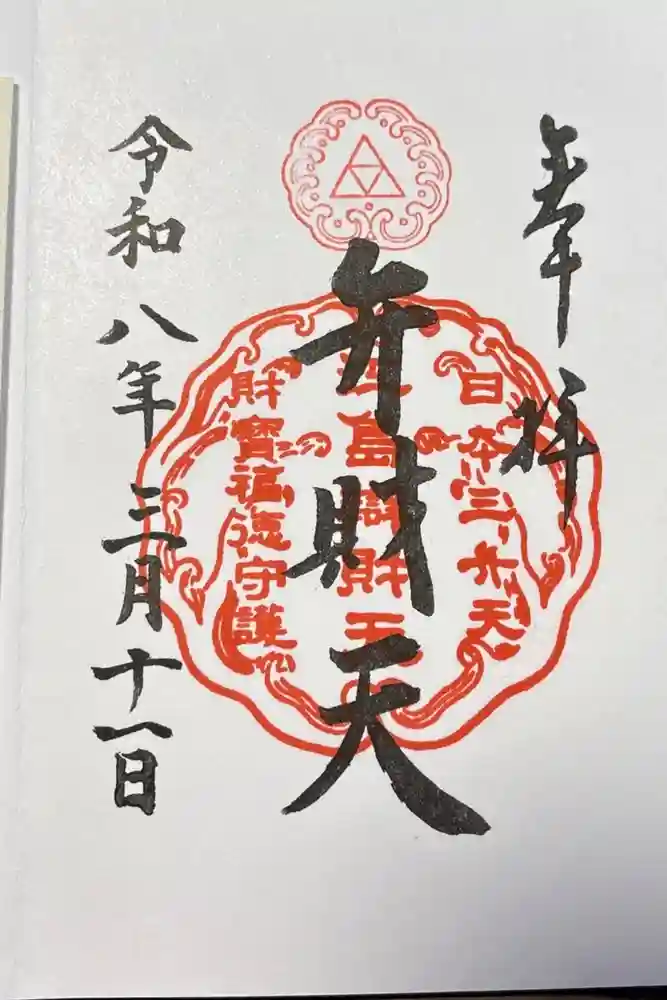 奉拝
日本三弁天
島辨財天
財寶福徳守護
弁財天
令和八年三月十一日